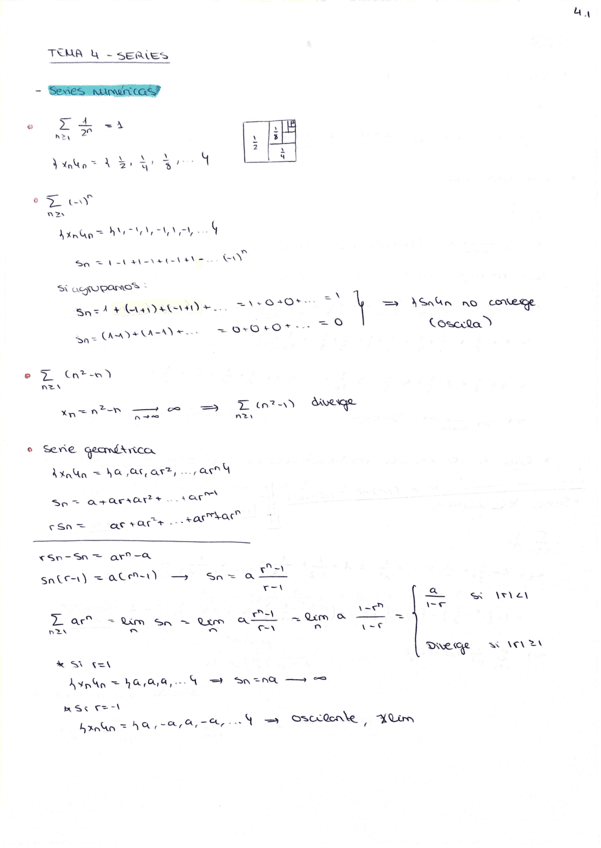 4.1
TEMA 4 - SERIES
- Series numéricas
∑ n≥1 1/2ⁿ = 1
{xn}n = { 1/2, 1/4, 1/8, ... }
1/2 1/8 1/4
∑ n≥1 (-1)ⁿ
{xn}n = {1, -1, 1, -1, 1, -1, ... }
Sn = 1-1+1-1+1-1+1- ... (-1)ⁿ
Si agrupamos:
Sn = 1 + (-1+1)+(-1+1)+ ... = 1+0+0+... = 1
Sn = (1-1)+(1-1)+ ... = 0+0+0+ ... = 0
⇒ {Sn}n no converge
(oscila)
∑ n≥1 (n²-n)
xn = n²-n → n→∞ ∞ ⇒ ∑ n≥1 (n²-1) diverge
Serie geométrica
{xn}n = {a, ar, ar², ..., arⁿ}
Sn = a+ar+ar²+ ... +arⁿ⁻¹
rSn = ar+ar²+ ... +arⁿ⁻¹+arⁿ
rSn-Sn = arⁿ-a
Sn(r-1) = a(rⁿ-1) → Sn = a (rⁿ-1)/(r-1)
∑ n≥1 arⁿ = lim n Sn = lim n a (rⁿ-1)/(r-1) = lim n a (1-rⁿ)/(1-r) = { a/(1-r) si |r|<1
Diverge si |r|≥1
* Si r=1
{xn}n = {a, a, a, ... } ⇒ Sn = na → ∞
* Si r=-1
{xn}n = {a, -a, a, -a, ... } ⇒ oscilante, ∄lim